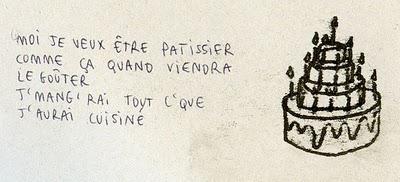 MOI JE VEUX ÊTRE PATISSIER
COMME ÇA QUAND VIENDRA
LE GOÛTER
J'MANG'RAI TOUT C'QUE
J'AURAI CUISINE